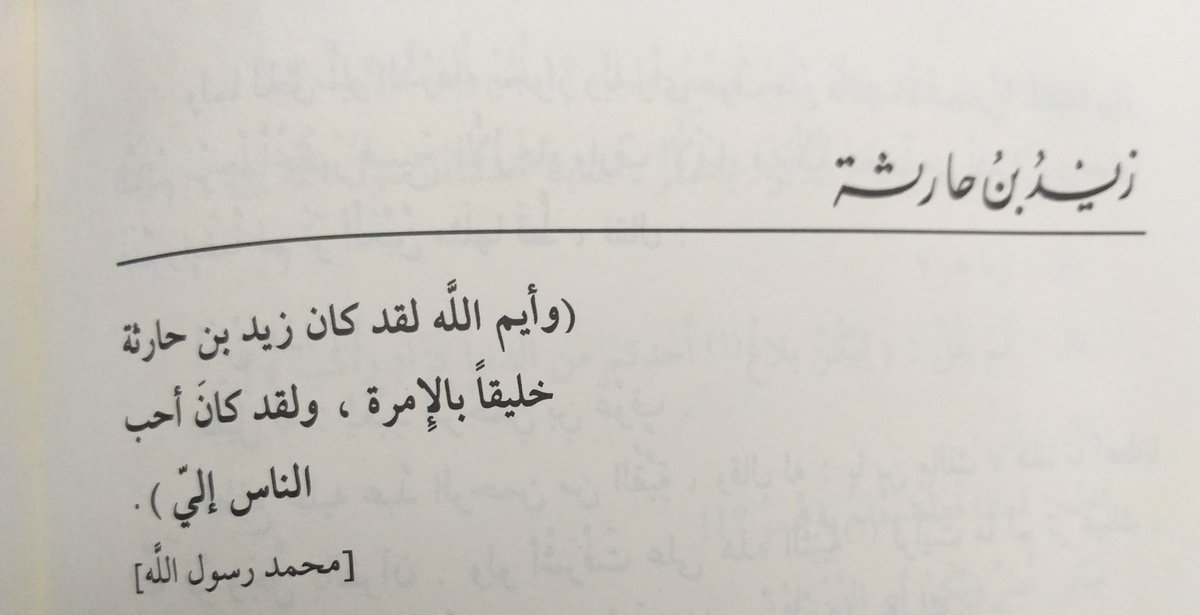 زيدُ بنُ حارثة
(وأيم اللَّه لقد كان زيد بن حارثة
خليقاً بالإِمرة ، ولقد كانَ أحب
الناس إليّ ) .
[محمد رسول اللَّه]